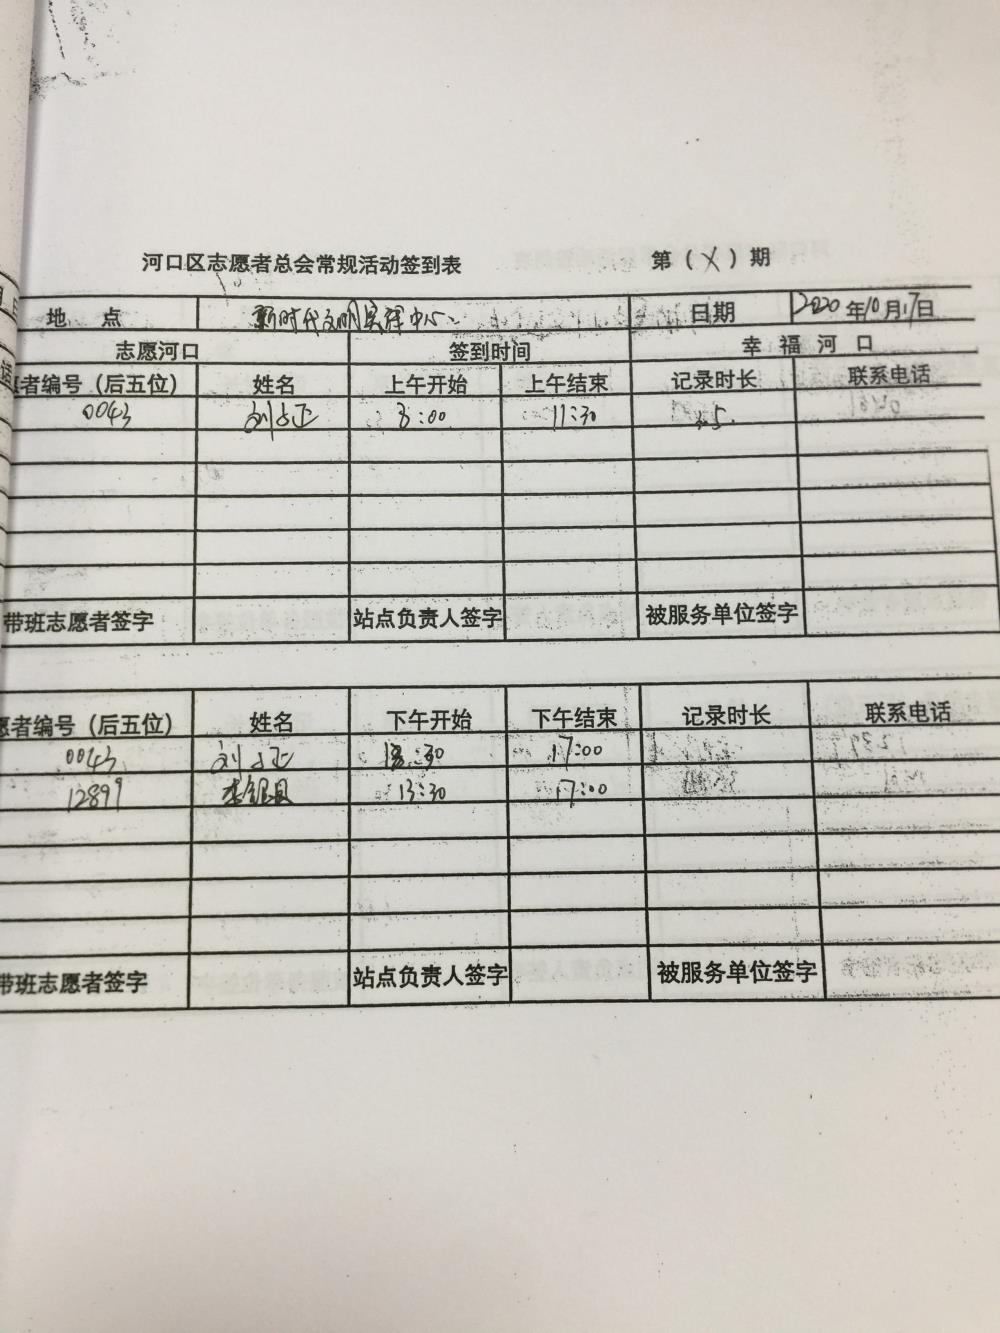 河口区志愿者总会常规活动签到表 第（ ）期
地 点 新时代文明实践中心 日期 2020年10月17日
志愿河口 签到时间 幸 福 河 口
者编号（后五位） 姓名 上午开始 上午结束 记录时长 联系电话
0043 8:00 11:30
带班志愿者签字 站点负责人签字 被服务单位签字
愿者编号（后五位） 姓名 下午开始 下午结束 记录时长 联系电话
0043 刘 正 13:30 17:00
12899 李银 13:30 17:00
带班志愿者签字 站点负责人签字 被服务单位签字